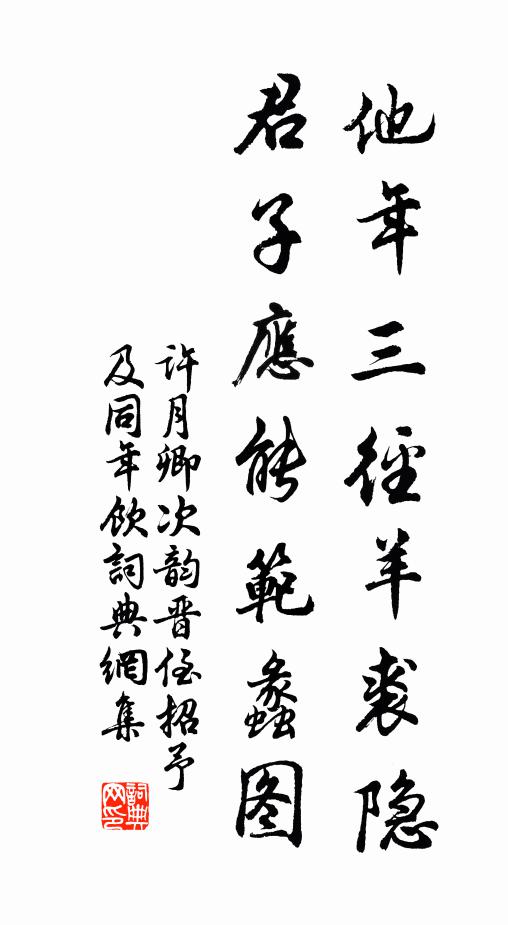 他年三徑羊裘隐
君子應能範蠡图
许月卿次韵晋侄招予
及同年飲詞典網集
詞典
网印